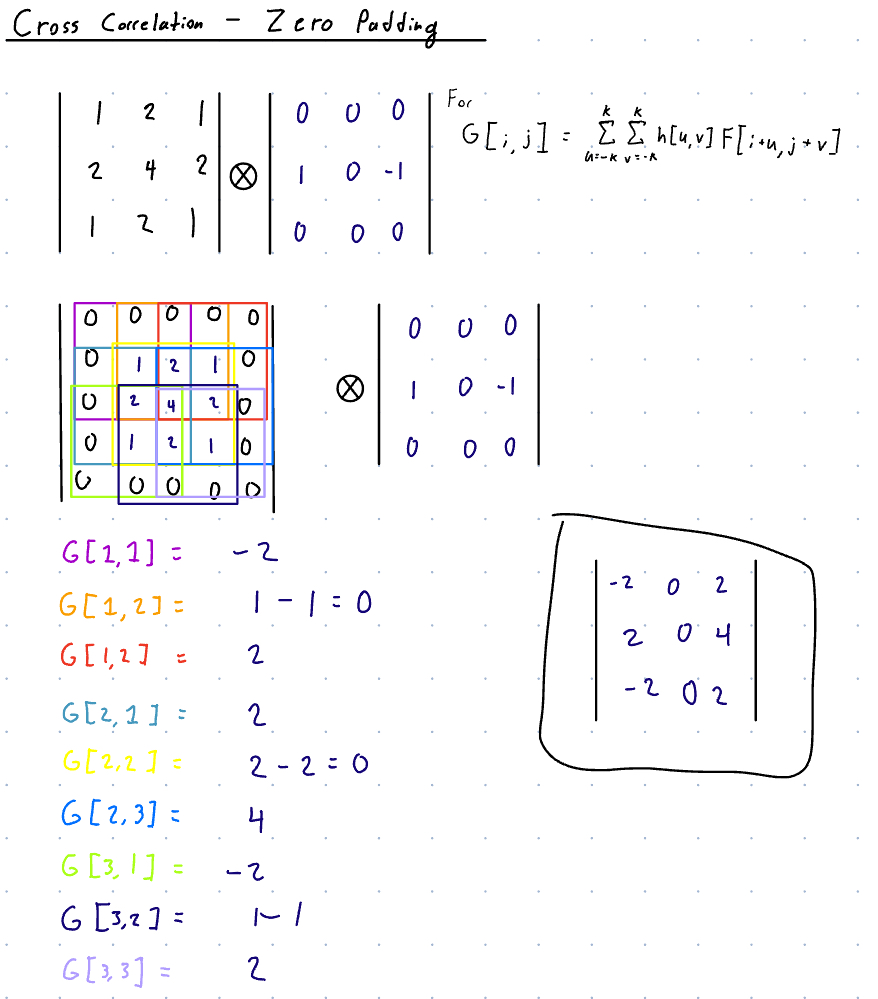 Cross Correlation - Zero Padding
1 2 1
2 4 2
1 2 1
⊗
0 0 0
1 0 -1
0 0 0
For
G[i,j] = k∑u=-k k∑v=-k h[u,v] F[i+u, j+v]
0 0 0 0 0
0 1 2 1 0
0 2 4 2 0
0 1 2 1 0
0 0 0 0 0
⊗
0 0 0
1 0 -1
0 0 0
G[1,1] = -2
G[1,2] = 1 - 1 = 0
G[1,2] = 2
G[2,1] = 2
G[2,2] = 2 - 2 = 0
G[2,3] = 4
G[3,1] = -2
G[3,2] = 1-1
G[3,3] = 2
-2 0 2
2 0 4
-2 0 2